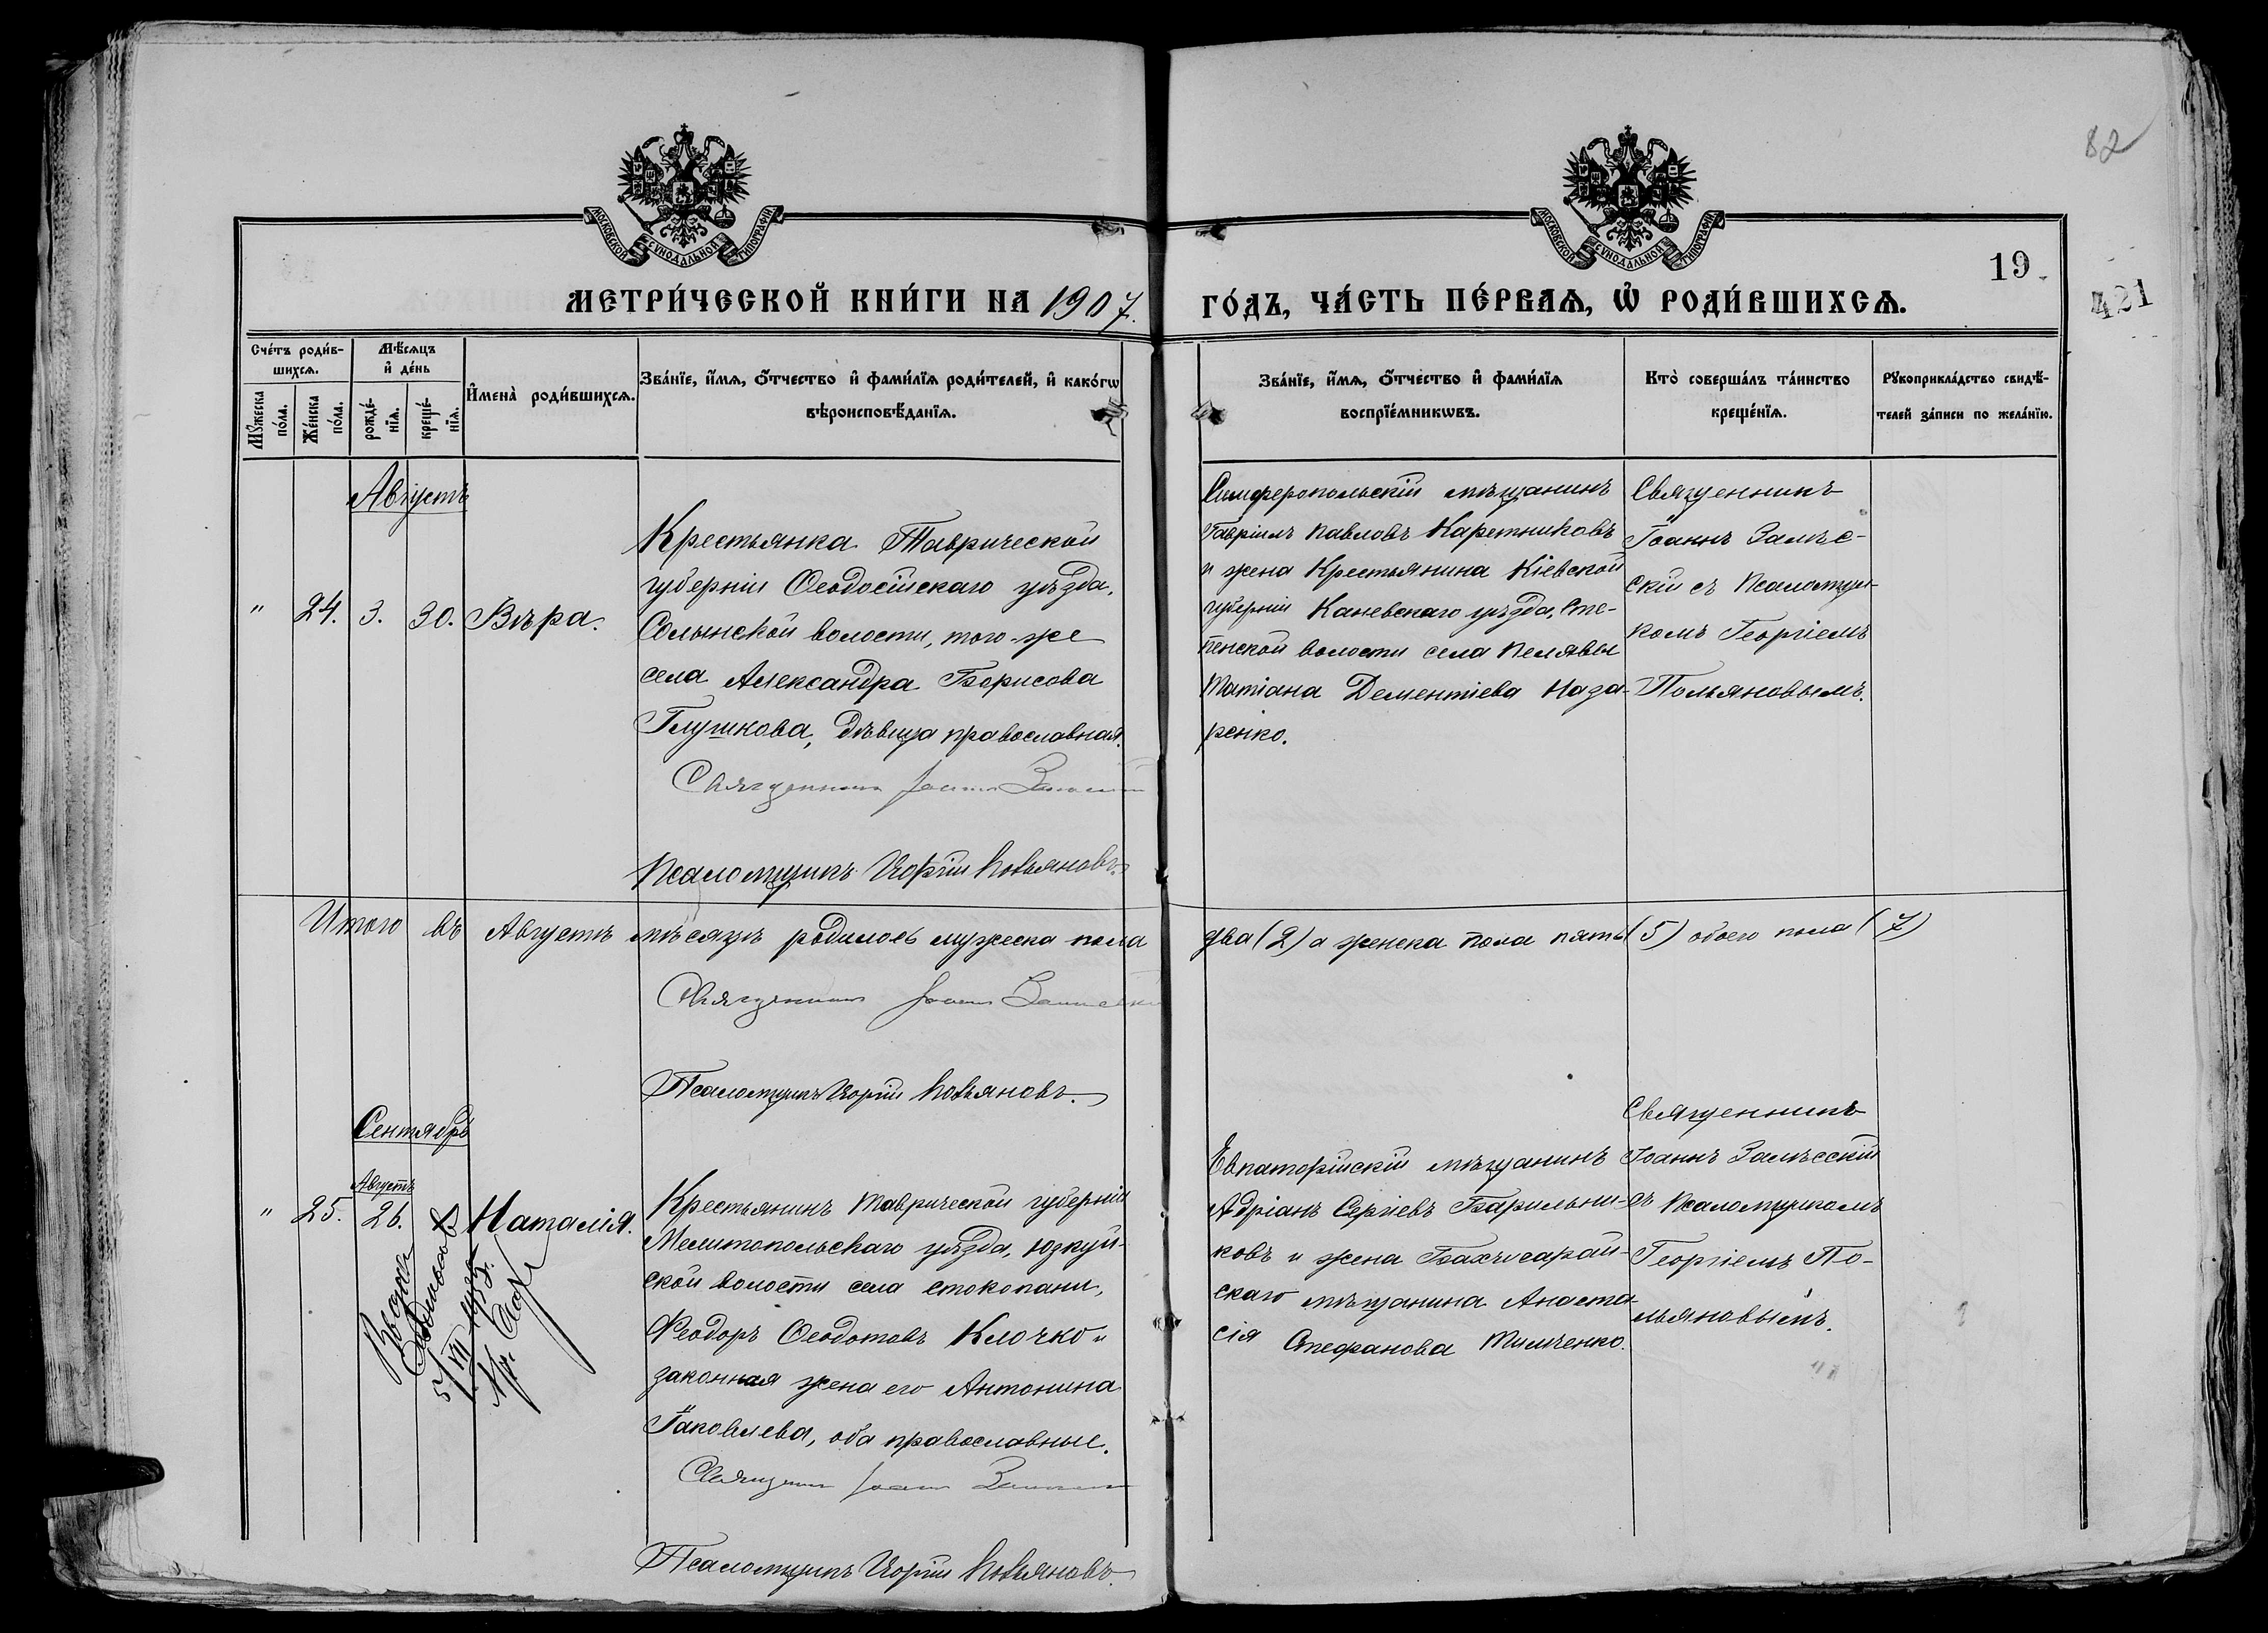 82
МОСКОВСКОЙ СѴНОДАЛЬНОЙ ТИПОГРАФІИ
МОСКОВСКОЙ СѴНОДАЛЬНОЙ ТИПОГРАФІИ
19
421
МЕТРИ́ЧЕСКОЙ КНИ́ГИ НА 1907.
ГО́ДЪ, ЧА́СТЬ ПЕ́РВАѦ, Ѿ РОДИ́ВШИХСѦ.
Сче́тъ роди́в-
шихсѧ.
Мꙋ́жеска по́ла.
Же́нска по́ла.
Мѣ́сѧцъ
и҆ де́нь
рожде́нїѧ.
креще́нїѧ.
И҆мена̀ роди́вшихсѧ.
Зва́нїе, и҆́мѧ, ѻ҆́тчество и҆ фами́лїѧ роди́телей, и҆ како́гѡ
вѣроисповѣ́данїѧ.
Зва́нїе, и҆́мѧ, ѻ҆́тчество и҆ фами́лїѧ
воспрїе́мникѡвъ.
Кто̀ соверша́лъ та́инство
креще́нїѧ.
Рꙋкоприкла́дство свидѣ́-
телей за́писи по жела́нїю.
Августъ
" 24. 3. 30. Вѣра.
Крестьянка Таврической
губерніи Ѳеодосійскаго уѣзда,
волости, того-же
села Александра Борисова
Глушкова, дѣвица православная.
Священникъ Іоаннъ
Псаломщикъ
Симферопольскій мѣщанинъ
Гавріилъ Павловъ Каретниковъ
и жена Крестьянина Кіевской
губерніи Каневскаго уѣзда, Сте-
пенской волости села Пелявы
Татіана Дементіева Наза-
ренко.
Священникъ
Іоаннъ Залѣс-
скій съ Псаломщи-
комъ Георгіемъ
Польяновымъ.
Итого въ Августѣ мѣсяцѣ родилось мужеска пола два (2) а женска пола пять (5) обоего пола (7)
Священникъ Іоаннъ
Псаломщикъ
Сентябрь
Августъ
" 25. 26. 8 Наталія.
5/VII
Крестьянинъ Таврической губерніи
Мелитопольскаго уѣзда, Юзкуй-
ской волости села Стокопани,
Ѳеодоръ Ѳеодотовъ Клочко и
законная жена его Антонина
Іаковлева, оба православные.
Священникъ Іоаннъ
Псаломщикъ
Евпаторійскій мѣщанинъ
Адріанъ Сергіевъ Барильни-
ковъ и жена Бахчисарай-
скаго мѣщанина Анаста-
сія Стефанова Тимченко.
Священникъ
Іоаннъ Залѣсскій
съ Псаломщикомъ
Георгіемъ По-
льяновымъ.